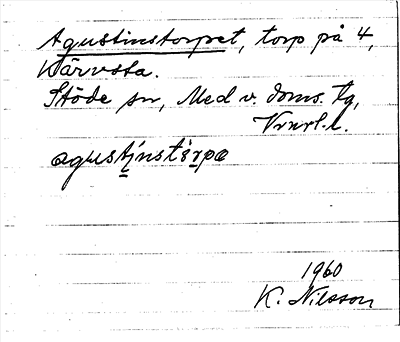 Agustinstorpet, torp på 4,
Kärvsta.
Stöde sn, Med v. doms. tg,
Vrnrl. l.
agustinstɔrpə
1960
K. Nilsson